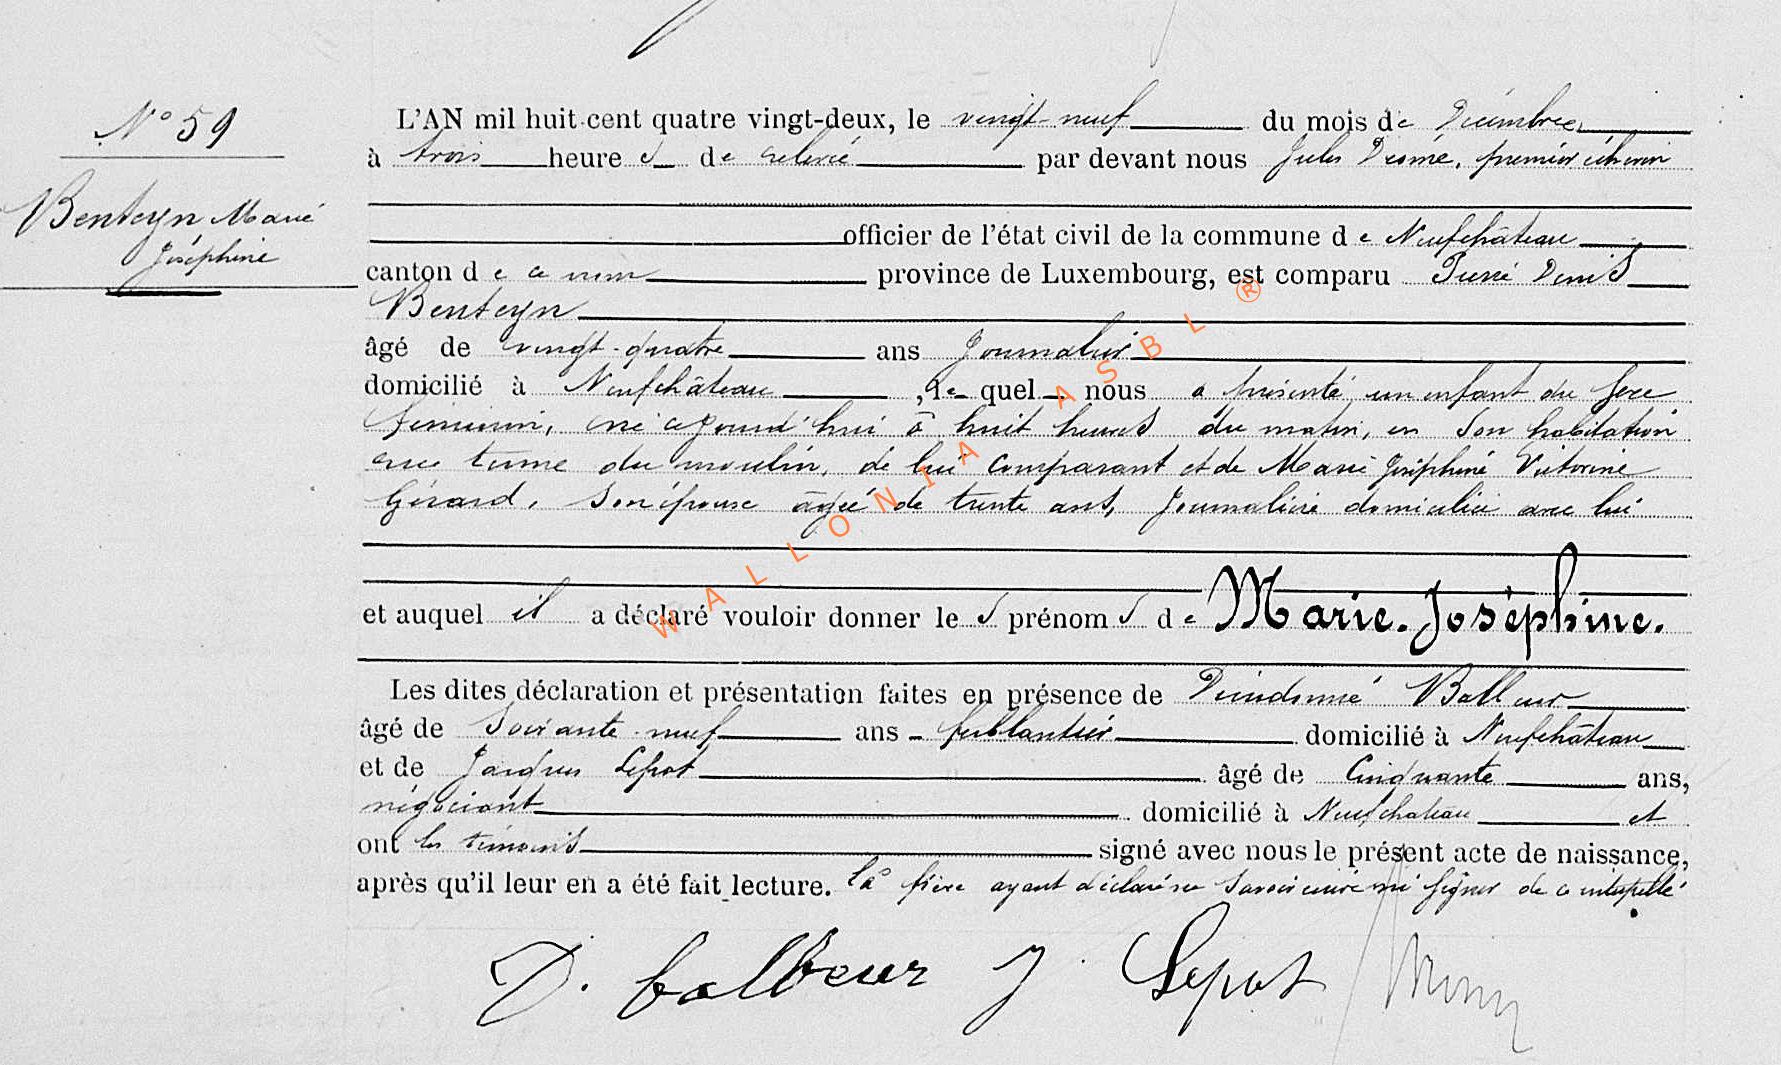 N° 59
Benteyn Marie
Joséphine
L'AN mil huit cent quatre vingt-deux, le vingt-neuf du mois de Décembre
à trois heures de relevé par devant nous Jules premier échevin
officier de l'état civil de la commune de Neufchâteau
canton de ce nom province de Luxembourg, est comparu Pierre Denis
Benteyn
âgé de vingt-quatre ans Journalier
domicilié à Neufchâteau, lequel nous a présenté un enfant du sexe
féminin, né aujourd'hui à huit heures du matin, en son habitation
du moulin, de lui comparant et de Marie Joséphine Victorine
Gérard, son épouse âgée de trente ans, Journalière domiciliée avec lui
et auquel il a déclaré vouloir donner les prénoms de Marie-Joséphine.
Les dites déclaration et présentation faites en présence de Dieudonné Balbeur
âgé de soixante-neuf ans ferblantier domicilié à Neufchâteau
et de Jacques Lepot âgé de Cinquante ans,
négociant domicilié à Neufchateau et
ont les témoins signé avec nous le présent acte de naissance,
après qu'il leur en a été fait lecture. Le père ayant déclaré ne savoir écrire ni signer de ce interpellé
D. balbeur J. Lepot
WALLONIA ASBL ®